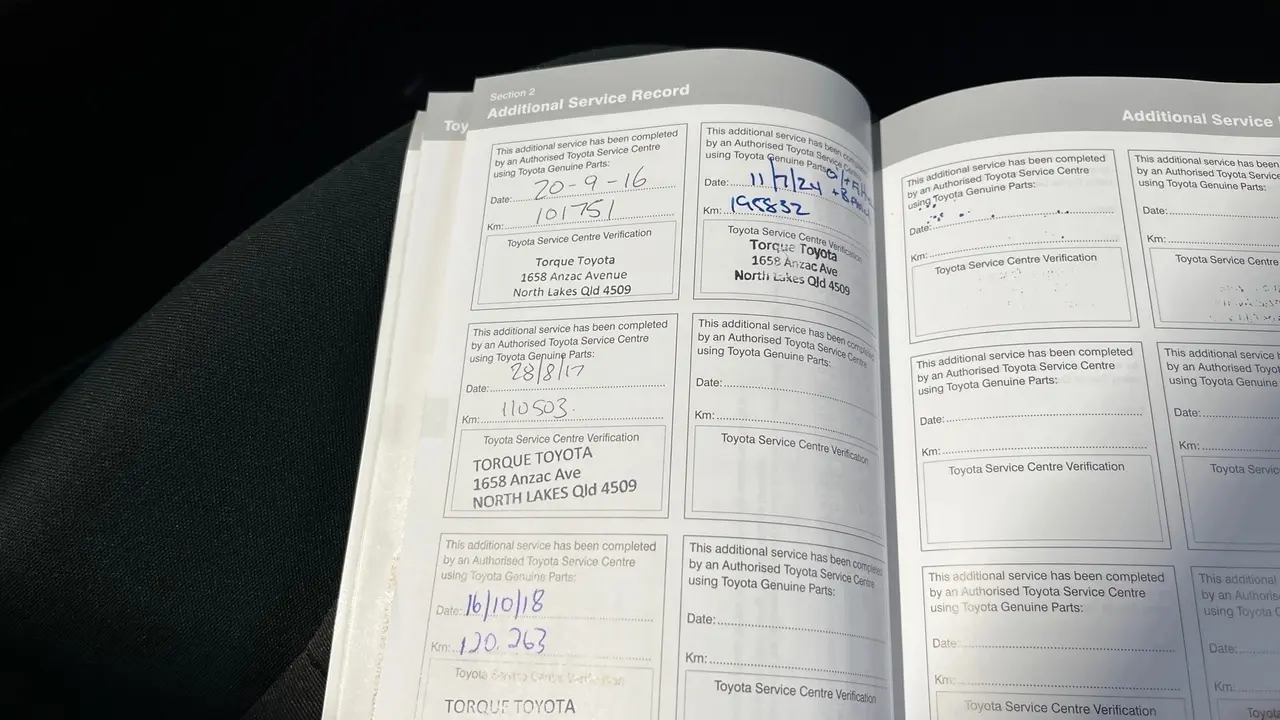 Section 2
Additional Service Record
This additional service has been completed
by an Authorised Toyota Service Centre
using Toyota Genuine Parts:
Date: 20-9-16
Km: 101751
Toyota Service Centre Verification
Torque Toyota
1658 Anzac Avenue
North Lakes Qld 4509
This additional service has been completed
by an Authorised Toyota Service Centre
using Toyota Genuine Parts:
Date: 28/8/17
Km: 110503.
Toyota Service Centre Verification
TORQUE TOYOTA
1658 Anzac Ave
NORTH LAKES Qld 4509
This additional service has been completed
by an Authorised Toyota Service Centre
using Toyota Genuine Parts:
Date: 16/10/18
Km: 120.263
Toyota Service Centre Verification
TORQUE TOYOTA
This additional service has been completed
by an Authorised Toyota Service Centre
using Toyota Genuine Parts:
Date: 11/7/24
Km:
Toyota Service Centre Verification
Torque Toyota
1658 Anzac Ave
North Lakes Qld 4509
This additional service has been completed
by an Authorised Toyota Service Centre
using Toyota Genuine Parts:
Date:
Km:
Toyota Service Centre Verification
This additional service has been completed
by an Authorised Toyota Service Centre
using Toyota Genuine Parts:
Date:
Km:
Toyota Service Centre Verification
Toy
Additional Service
This additional service has been completed
by an Authorised Toyota Service Centre
using Toyota Genuine Parts:
Date:
Km:
Toyota Service Centre Verification
This additional service has been completed
by an Authorised Toyota Service Centre
using Toyota Genuine Parts:
Date:
Km:
Toyota Service Centre Verification
This additional service has been completed
by an Authorised Toyota Service Centre
using Toyota Genuine Parts:
Date:
Km:
Toyota Service Centre Verification
This additional service has been
by an Authorised Toyota
using Toyota Genuine Parts:
Date:
Km:
Toyota Service Centre
This additional service has been
by an Authorised
using Toyota Genuine
Date:
Km:
Toyota Service
This additional
by an Authoris
using Toyota G
Date:
Km:
Toyot